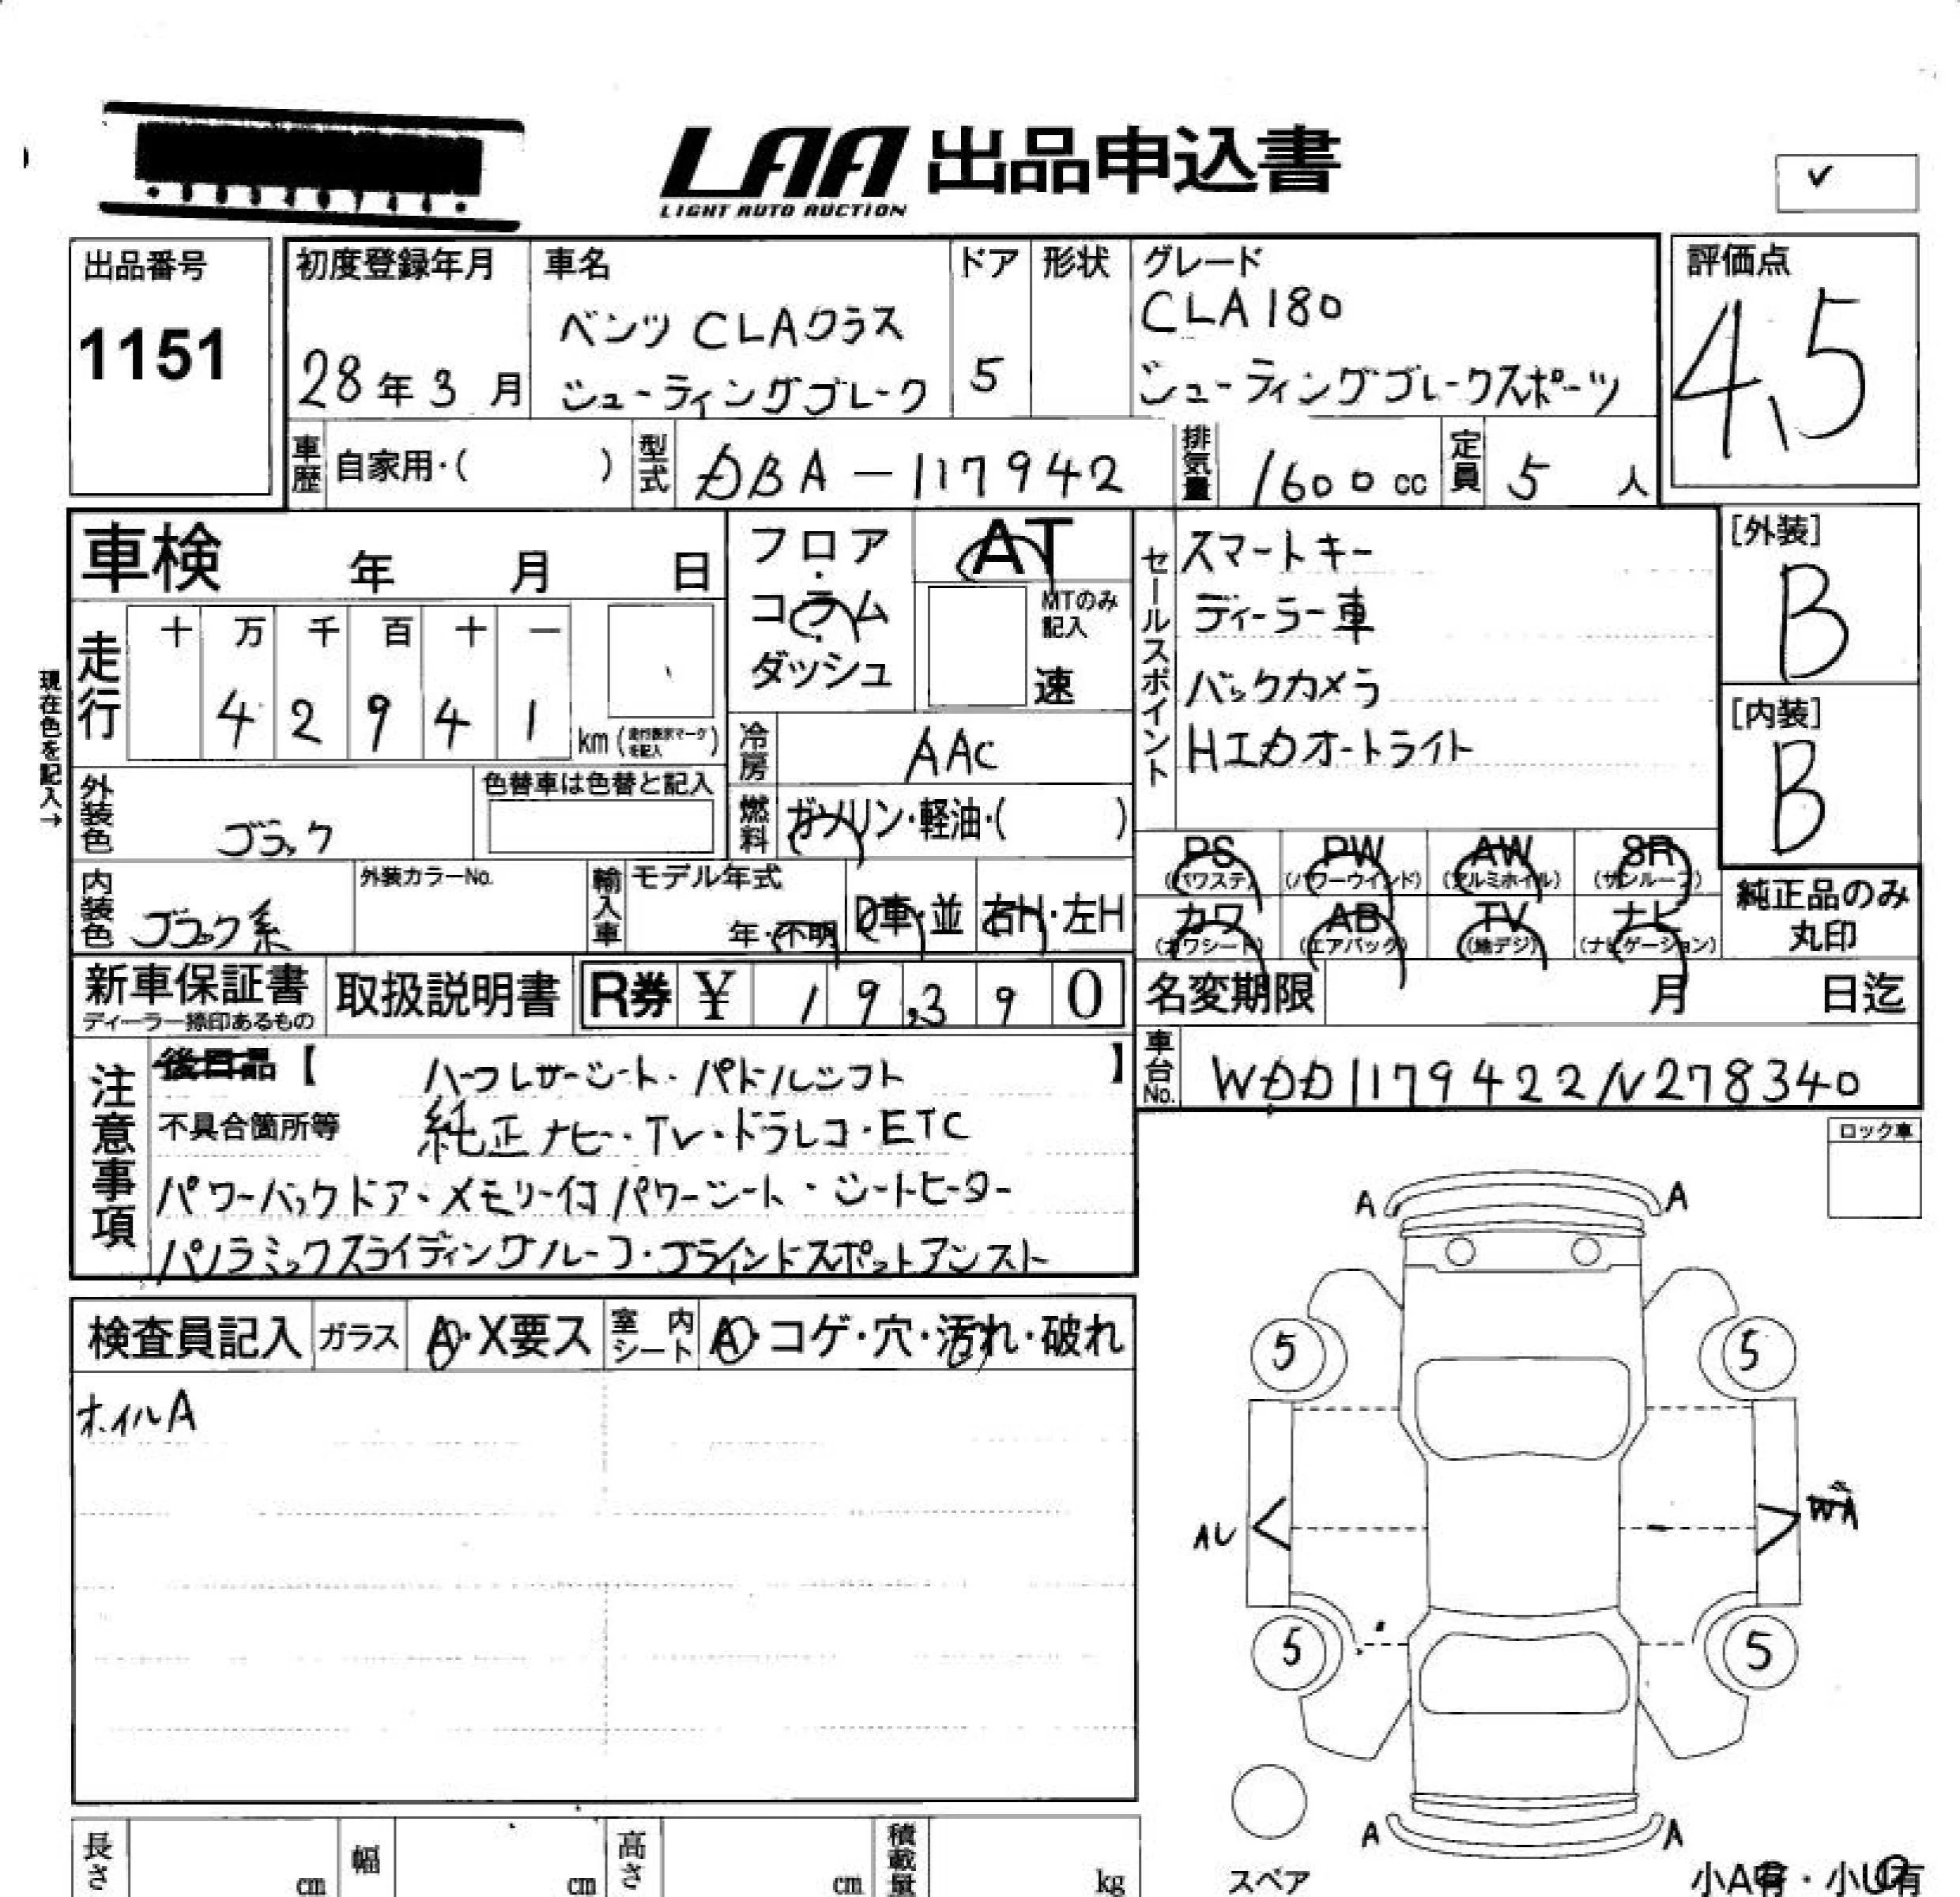 LAA 出品申込書
LIGHT AUTO AUCTION
✓
出品番号
1151
初度登録年月
28年3月
車名
ベンツ CLAクラス
シューティングブレーク
ドア
5
形状
グレード
CLA180
シューティングブレークスポーツ
評価点
4.5
車歴
自家用・( )
型式
DBA-117942
排気量
1600cc
定員
5人
車検 年 月 日
走行
十 万 千 百 十 一
4 2 9 4 1
km(走行表示マークを記入)
現在色を記入→
フロア・
コラム・
ダッシュ
AT
MTのみ記入
速
冷房
AAC
燃料
ガソリン・軽油・( )
外装色
ブラック
色替車は色替と記入
内装色
ブラック系
外装カラーNo.
輸入車
モデル年式
年・不明
D車・並
右H・左H
セールスポイント
スマートキー
ディーラー車
バックカメラ
HIDオートライト
[外装]
B
[内装]
B
PS(パワステ) PW(パワーウインド) AW(アルミホイル) SR(サンルーフ)
カワ(カワシート) AB(エアバック) TV(地デジ) ナビ(ナビゲーション)
純正品のみ
丸印
新車保証書
ディーラー捺印あるもの
取扱説明書
R券 ¥ 19,390
名変期限 月 日迄
車台No.
WDD1179422N278340
注意事項
後日品【 ハーフレザーシート・パドルシフト 】
不具合箇所等 純正ナビ・TV・ドラレコ・ETC
パワーバックドア・メモリー付パワーシート・シートヒーター
パノラミックスライディングルーフ・ブラインドスポットアシスト
ロック車
検査員記入
ガラス
A・X要ス
室内シート
A・コゲ・穴・汚れ・破れ
ホイルA
A A
5 5
AU
5 5
A A
スペア
小A有・小U有
長さ cm
幅 cm
高さ cm
積載量 kg